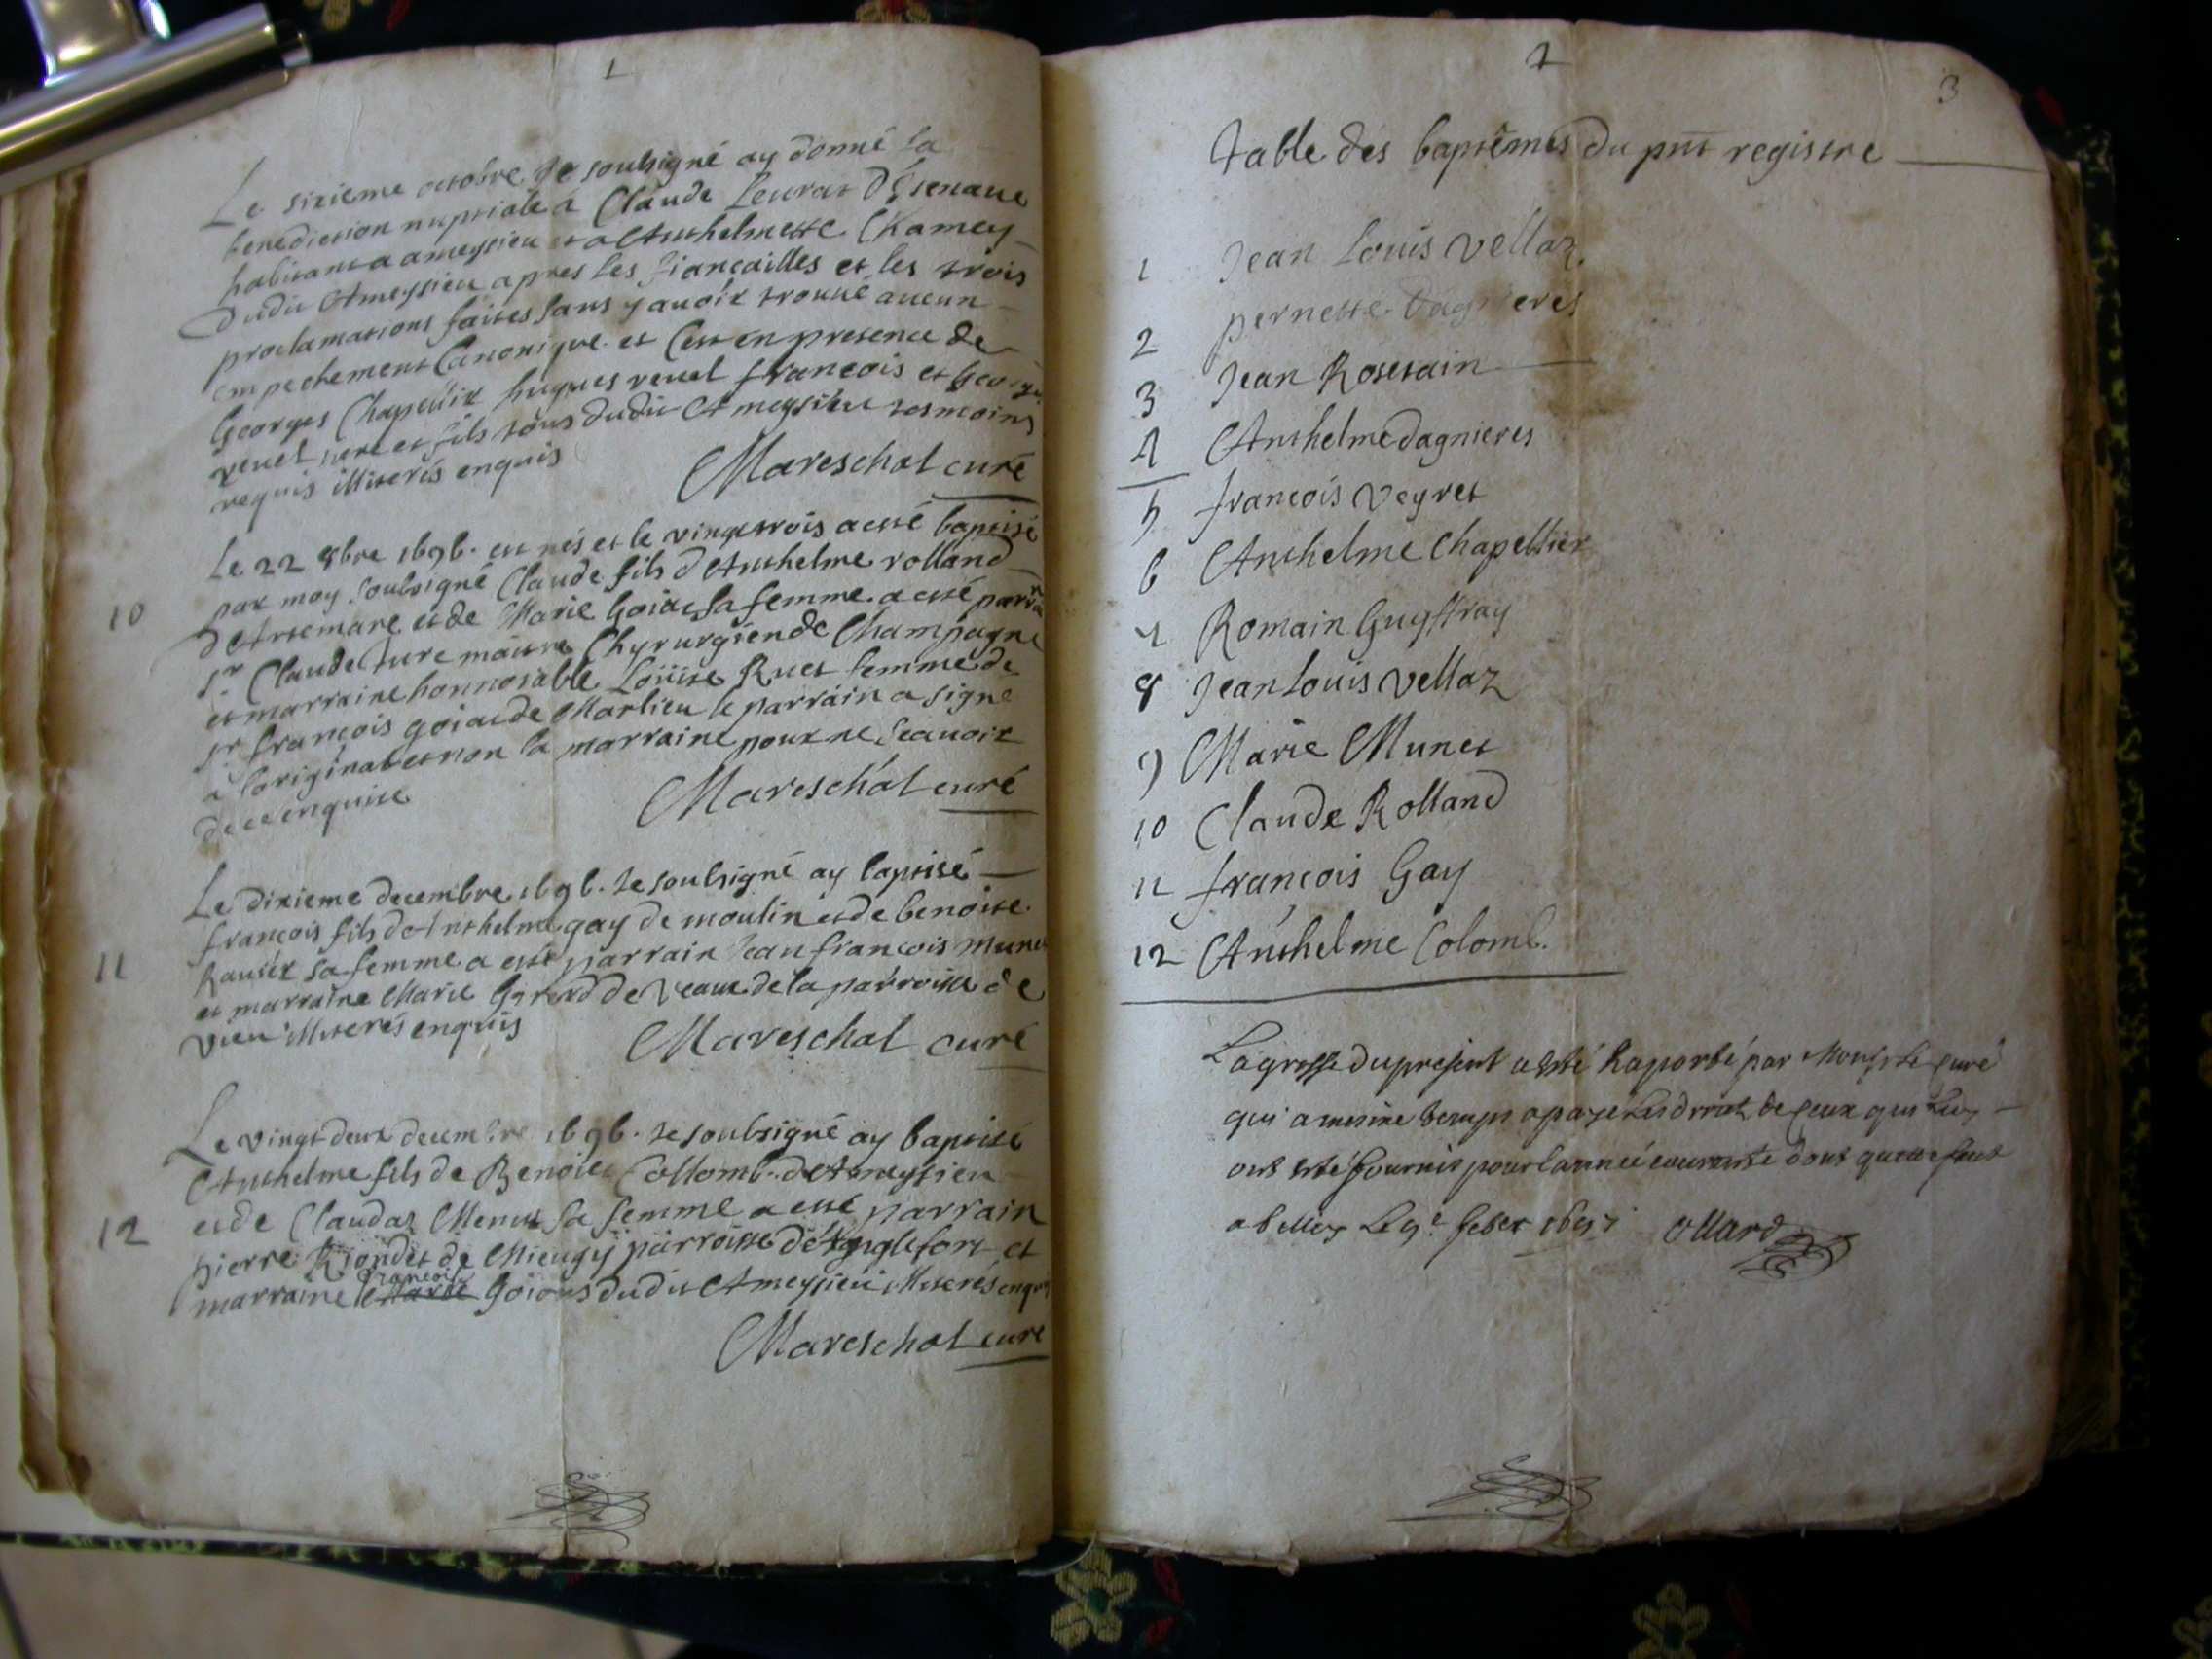 1
Le sixieme octobre Je soubsigné ay donné la
benediction nuptiale a Claude Leurat
habitant a ameysieu et a Anthelmette Chamey
dudit Ameysieu apres les fiançailles et les trois
proclamations faites sans y auoir trouué aucun
empechement Canonique et c'est en presence de
Georges Chapellix hugues reuel françois et George
reuel pere et fils tous dudit Ameysieu tesmoins
requis illiterés enquis
Mareschal curé
10
Le 22 8bre 1696. est nés et le vingt trois a esté baptisé
par moy soubsigné Claude fils d'Anthelme rolland
d'Artemare et de Marie Goiat sa femme. a esté parrain
Sr. Claude Ture maitre Chyrurgien de Champagne
et marraine honnorable Loüise Ruet femme de
Sr françois goiat de Marlieu le parrain a signé
a l'original et non la marraine pour ne scauoir
de ce enquise
Mareschal curé
11
Le dixieme decembre 1696. Je soubsigné ay baptisé
françois fils d'Anthelme gay de moulin et de benoite
sa femme a esté parrain Jean françois Munet
et marraine Marie de Veaux de la parroisse de
vieu illiterés enquis
Mareschal curé
12
Le vingt deux decembre 1696. Je soubsigné ay baptisé
Anthelme fils de Benoit Collomb. d'Ameysieu
et de Claudaz sa femme a esté parrain
pierre Riondet de Mieugy parroisse d'Anglefort et
françoise
marraine Marie Goious dudit Ameysieu illiterés enquis
Mareschal curé
3
Table des baptêmes du pnt registre
1 Jean Louis Vellaz
2 pernette Dagnieres
3 Jean Rosetain
4 Anthelme dagnieres
5 françois Veyret
6 Anthelme Chapellier
7 Romain Guyffray
8 Jean Louis Vellaz
9 Marie Munet
10 Claude Rolland
11 françois Gay
12 Anthelme Colomb.
La grosse du present a esté raporté par Monsr le curé
qui a mesme temps a payé les droits de ceux qui luy
ont esté fournis pour l'année courante dont quittance
a belley Le 9e feber 1697 Ollard